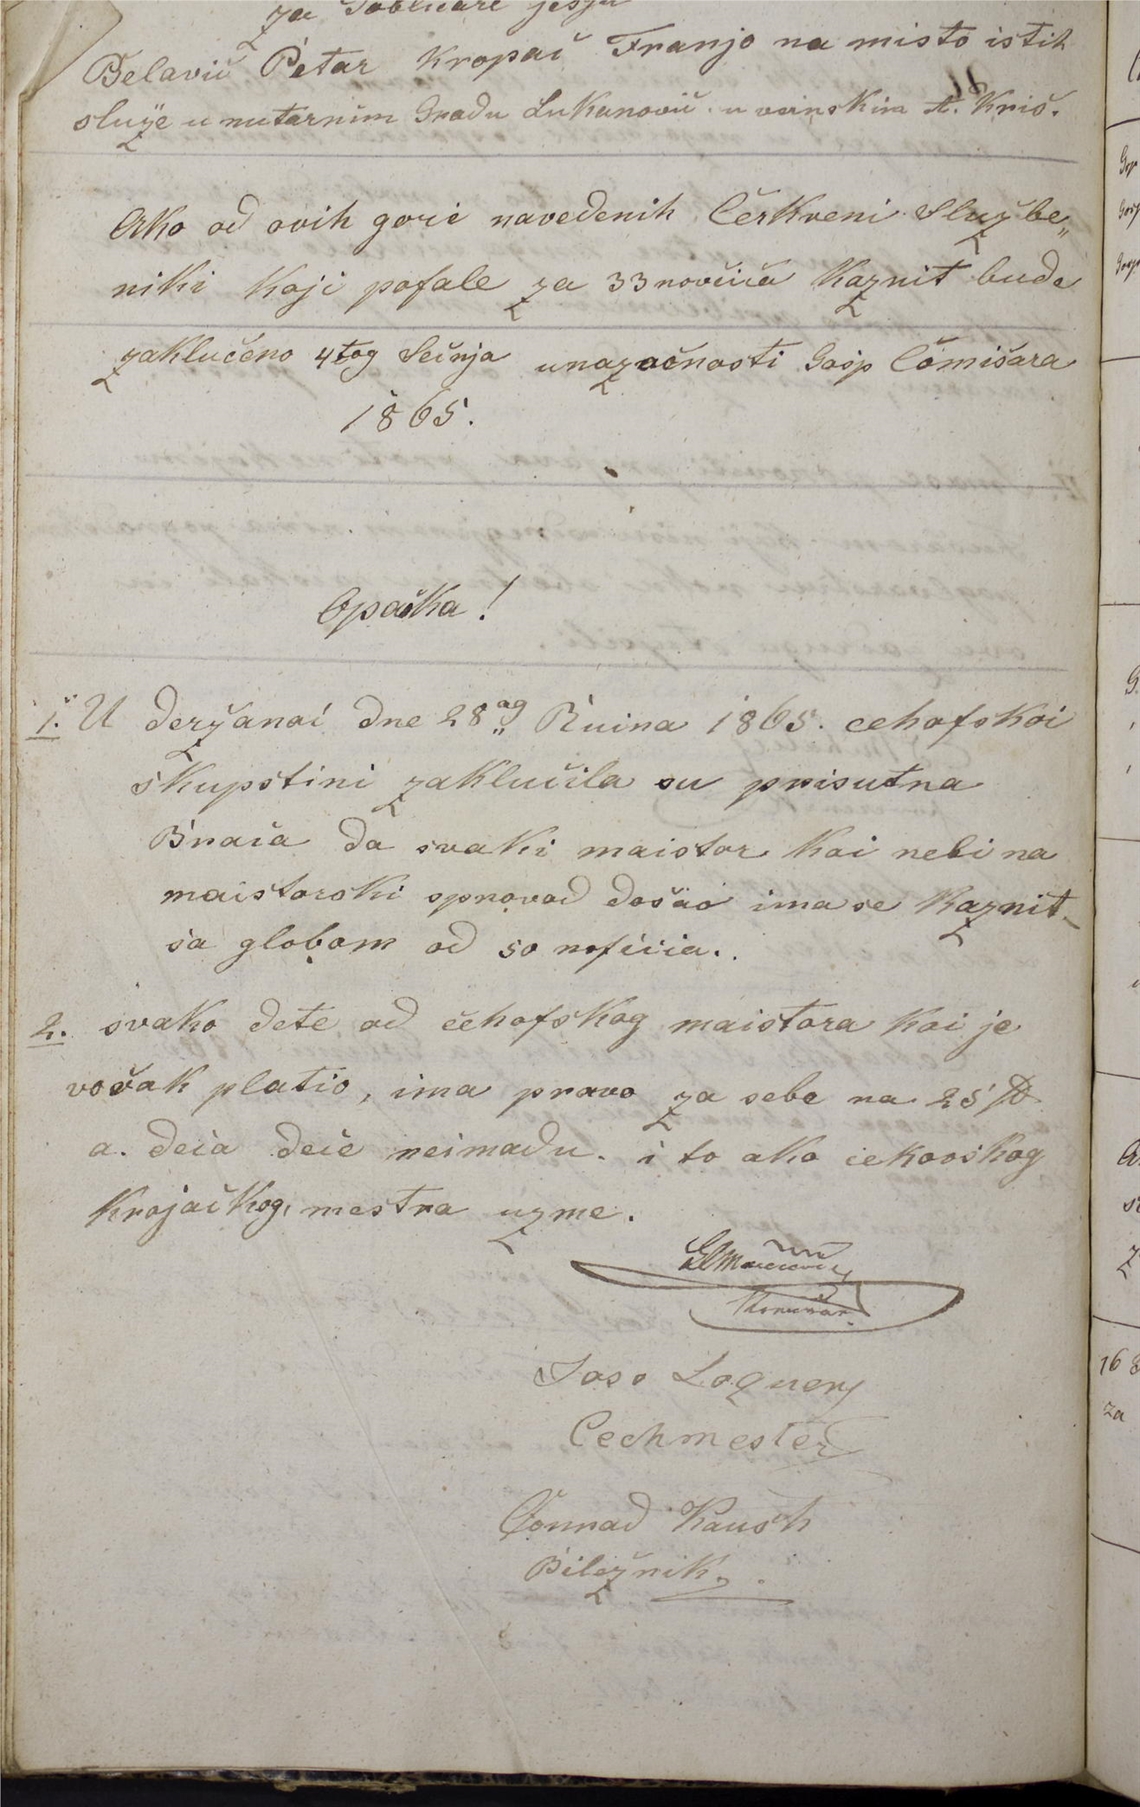 za Dobličare jesju
Belavič Petar Kropač Franjo na misto istih
služe u nutarnim Gradu Lukanovič u vainskim St. Križ.
Ako od ovih gorie navedenih Čerkveni Službe„
niki koji pofale za 33 novčića kaznit bude
zaključeno 4tog Sečnja unazočnosti Gosp Comišara
1865.
Opaska!
1. U deržanoi dne 28og Ruina 1865. cehofskoi
skupstini zaključila su prisutna
Braća da svaki maistor koi nebi na
maistorski sprovod došao ima se kaznit
sa globom od 50 nofčića.
2. svako dete od čehofskog maistora koi je
vočak platio, ima pravo za sebe na 25
a. deca deče neimadu. i to ako cehovskog
Krojačkog mestra uzme.
Komisar
Joso Loquery
Cechmester
Conrad Kaush
Biležnik